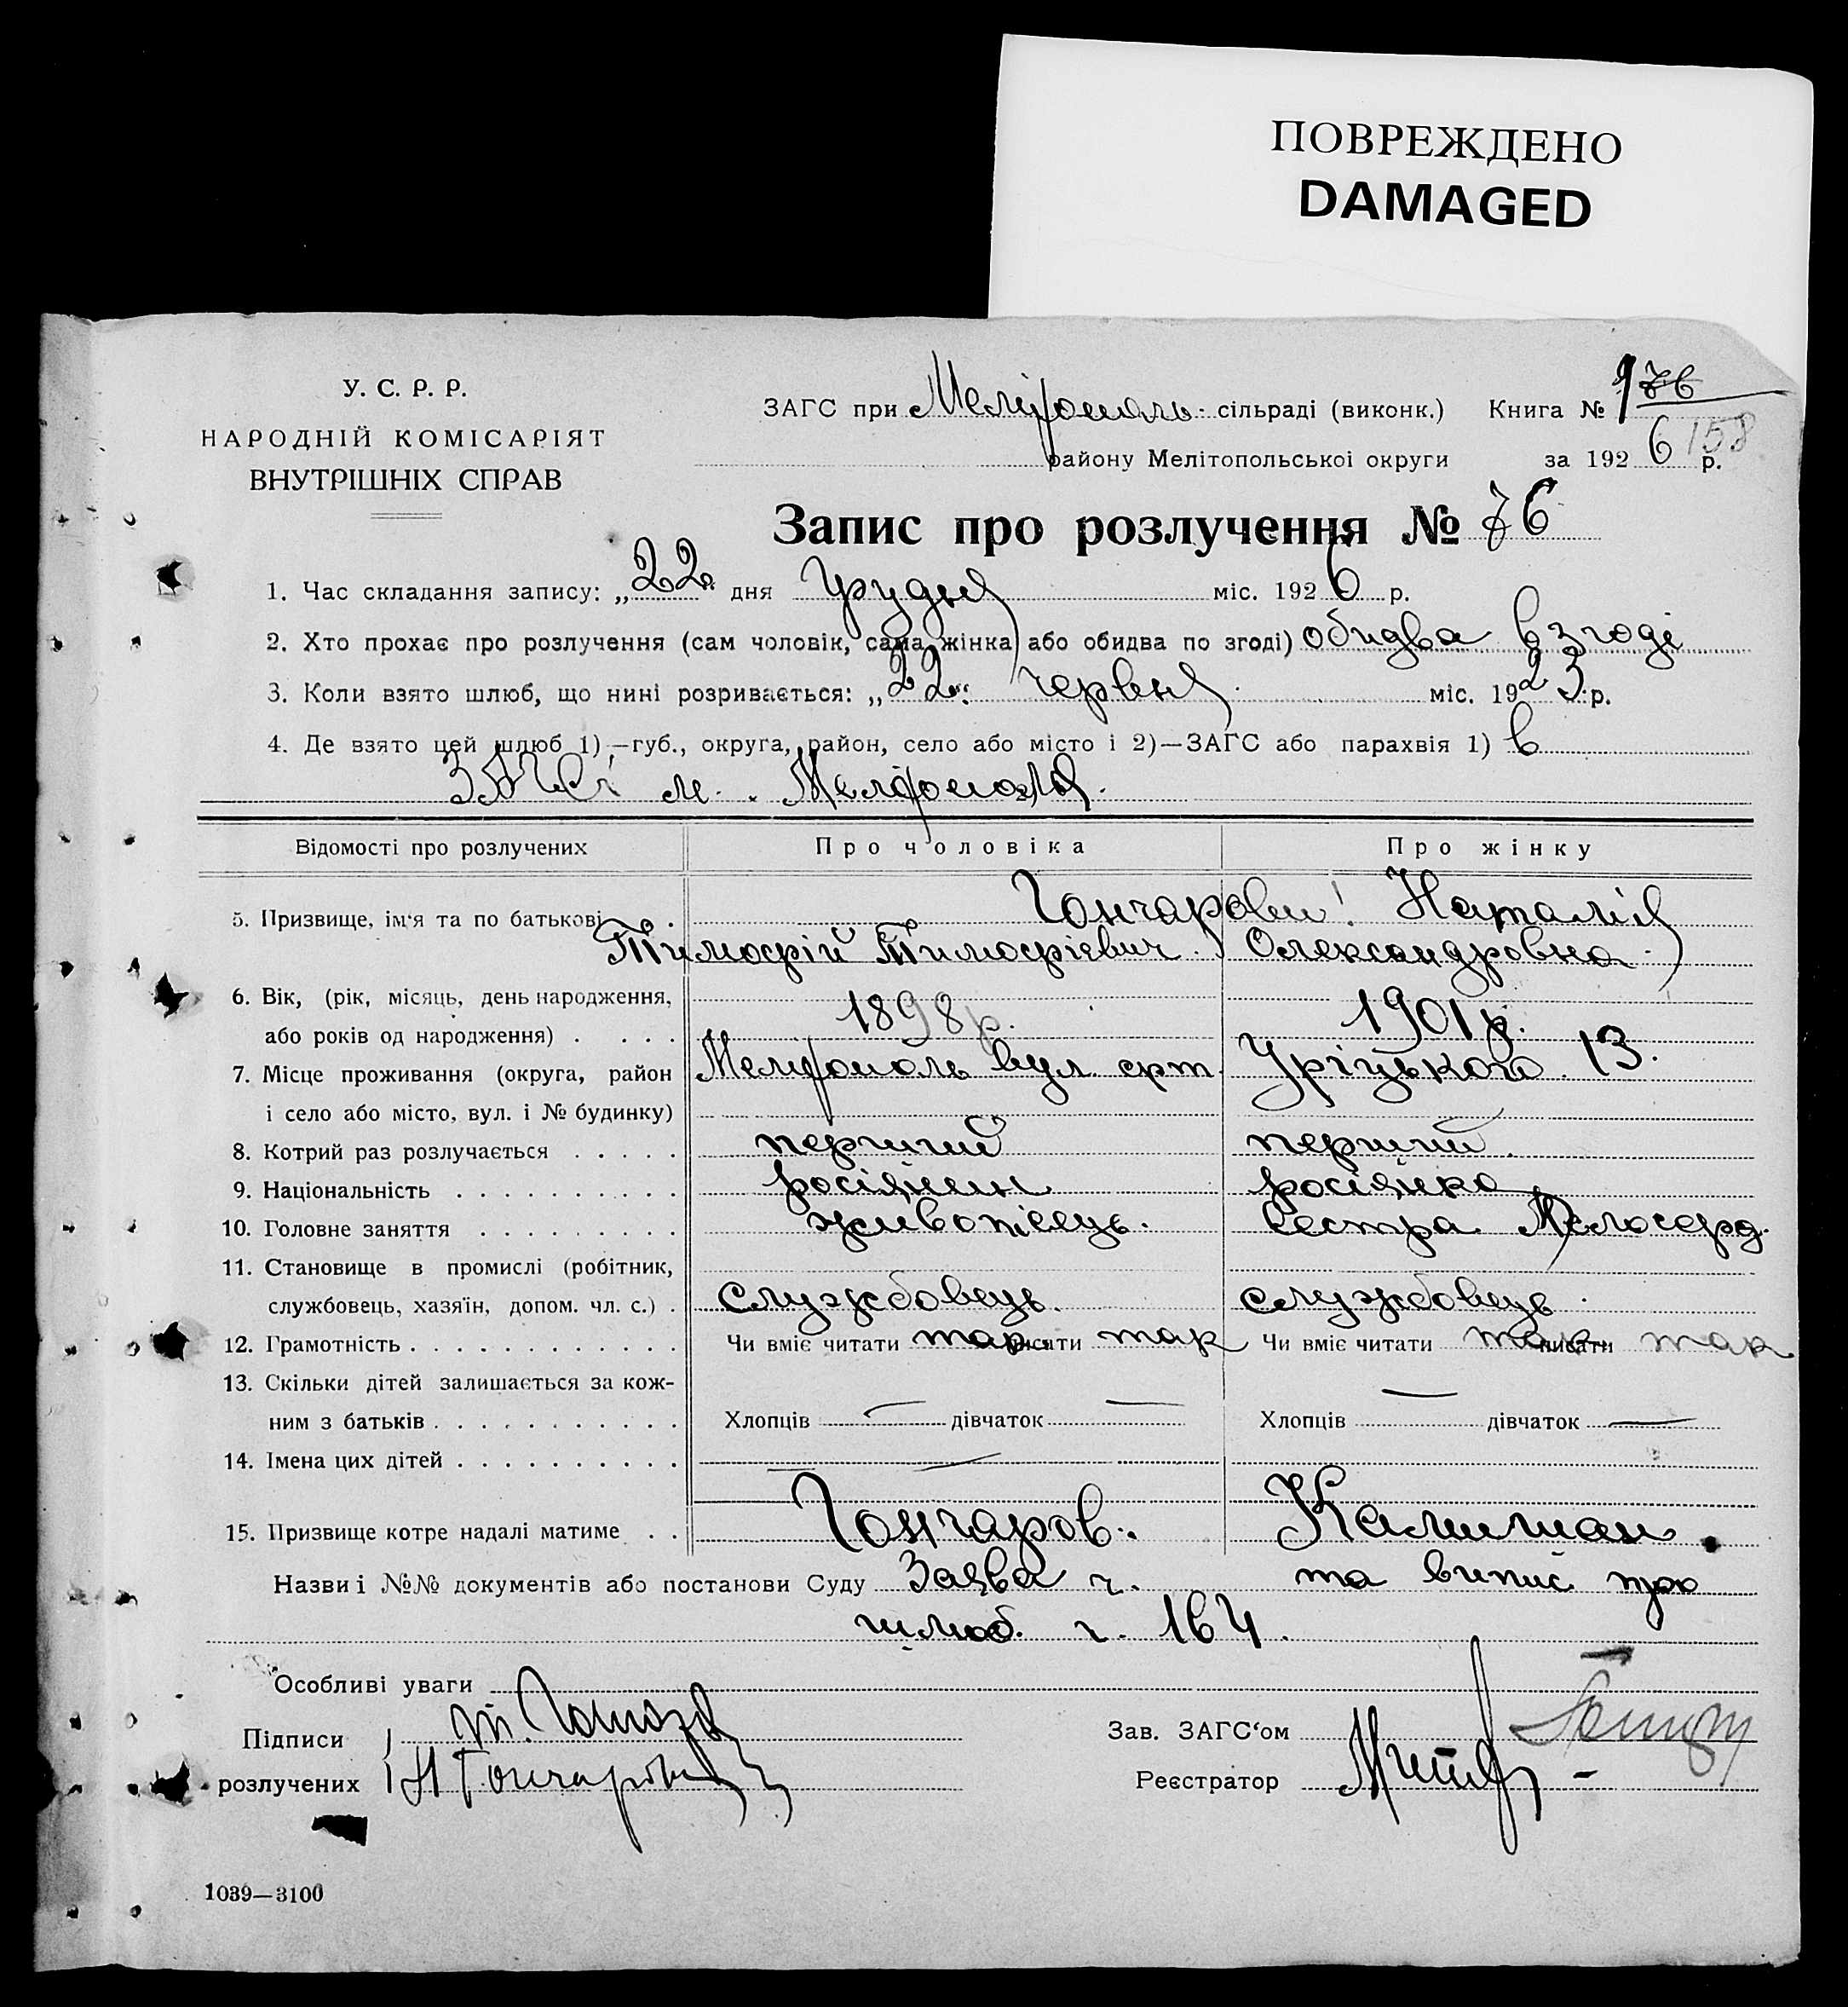 ПОВРЕЖДЕНО
DAMAGED
У. С. Р. Р.
НАРОДНІЙ КОМІСАРІЯТ
ВНУТРІШНІХ СПРАВ
ЗАГС при Мелітополь сільраді (виконк.) Книга №
району Мелітопольської округи за 1926 р. 158
Запис про розлучення № 76
1. Час складання запису: „22“ дня Грудня міс. 1926 р.
2. Хто прохає про розлучення (сам чоловік, сама жінка або обидва по згоді) обидва в згоді
3. Коли взято шлюб, що нині розривається: „22“ червня міс. 1923 р.
4. Де взято цей шлюб 1)—губ., округа, район, село або місто і 2)—ЗАГС або парахвія 1) в
ЗАГСі м. Мелітополя.
Відомості про розлучених Про чоловіка Про жінку
5. Призвище, ім'я та по батькові Гончарови: Наталія
Тимофій Тимофієвич. Олександровна
6. Вік, (рік, місяць, день народження,
або років од народження) . . . . 1898 р. 1901 р.
7. Місце проживання (округа, район Мелітополь вул. Уріцького 13.
і село або місто, вул. і № будинку)
8. Котрий раз розлучається . . . . . перший перший
9. Національність . . . . . . . . . . росіянин росіянка
10. Головне заняття . . . . . . . . . живопісець. Сестра Мілосерд.
11. Становище в промислі (робітник,
службовець, хазяїн, допом. чл. с.) . службовець. службовець
12. Грамотність . . . . . . . . . . . . Чи вміє читати так писати так Чи вміє читати так писати так
13. Скільки дітей залишається за кож-
ним з батьків . . . . . . . . . . . Хлопців — дівчаток — Хлопців — дівчаток —
14. Імена цих дітей . . . . . . . . . . —
15. Призвище котре надалі матиме . . Гончаров. Калишман.
Назви і №№ документів або постанови Суду Заява ч. та випис про
шлюб. ч. 164.
Особливі уваги
Підписи Зав. ЗАГС‘ом
розлучених Н Гончарова Реєстратор
1039—3100